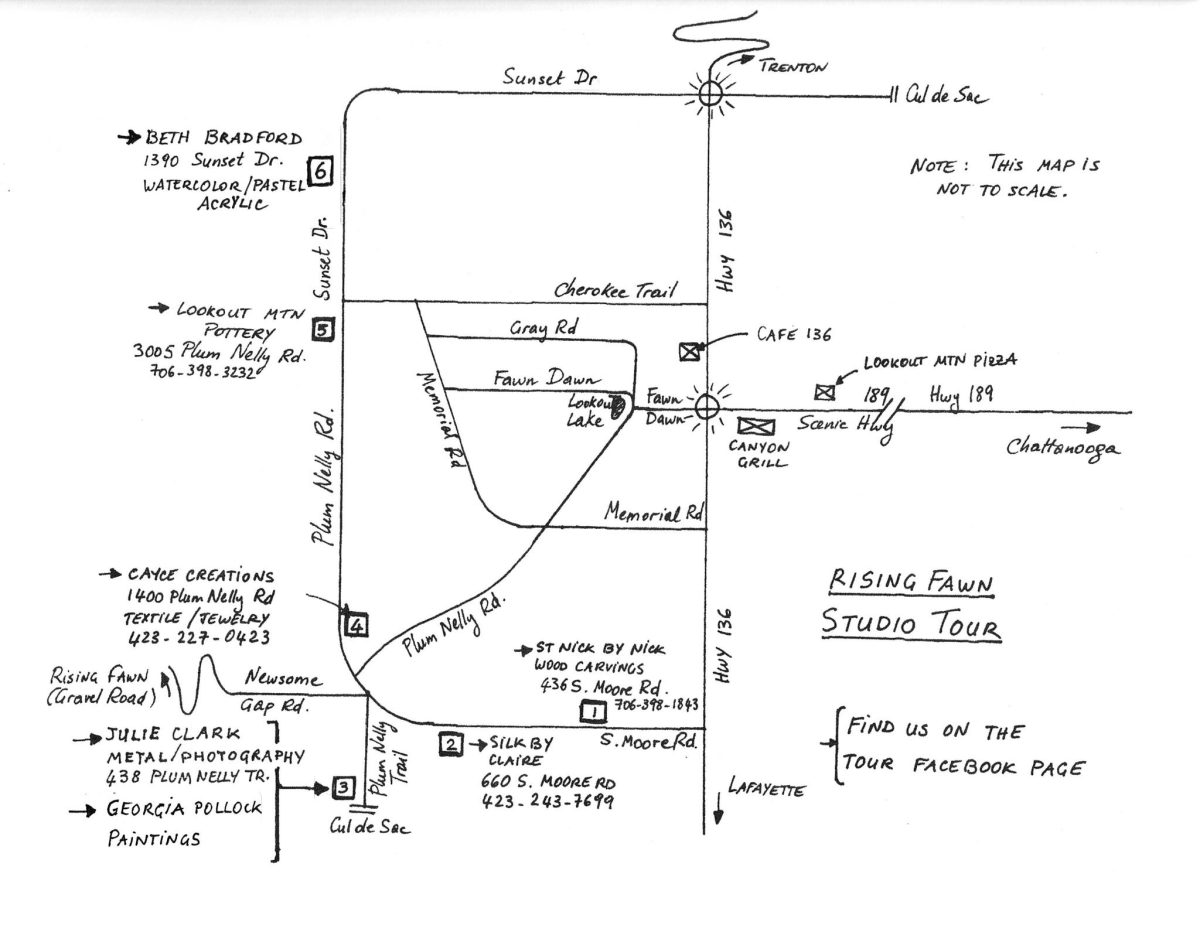 Sunset Dr
TRENTON
Cul de Sac
BETH BRADFORD
1390 Sunset Dr.
WATERCOLOR/PASTEL
ACRYLIC
6
NOTE: THIS MAP IS
NOT TO SCALE.
Sunset Dr.
Hwy 136
Cherokee Trail
LOOKOUT MTN
POTTERY
3005 Plum Nelly Rd.
706-398-3232
5
Gray Rd
CAFE 136
LOOKOUT MTN PIZZA
Fawn Dawn
Lookout
Lake
Fawn
Dawn
189
Hwy 189
Scenic Hwy
CANYON
GRILL
Chattanooga
Memorial Rd
Plum Nelly Rd.
Memorial Rd
CAYCE CREATIONS
1400 Plum Nelly Rd
TEXTILE/JEWELRY
423-227-0423
4
Plum Nelly Rd.
RISING FAWN
STUDIO TOUR
HWY 136
ST NICK BY NICK
WOOD CARVINGS
436 S. Moore Rd.
706-398-1843
1
RISING FAWN
(Gravel Road)
Newsome
Gap Rd.
S. Moore Rd.
2
SILK BY
CLAIRE
660 S. MOORE RD
423-243-7699
JULIE CLARK
METAL/PHOTOGRAPHY
438 PLUM NELLY TR.
GEORGIA POLLOCK
PAINTINGS
3
Plum Nelly
Trail
Cul de Sac
LAFAYETTE
FIND US ON THE
TOUR FACEBOOK PAGE